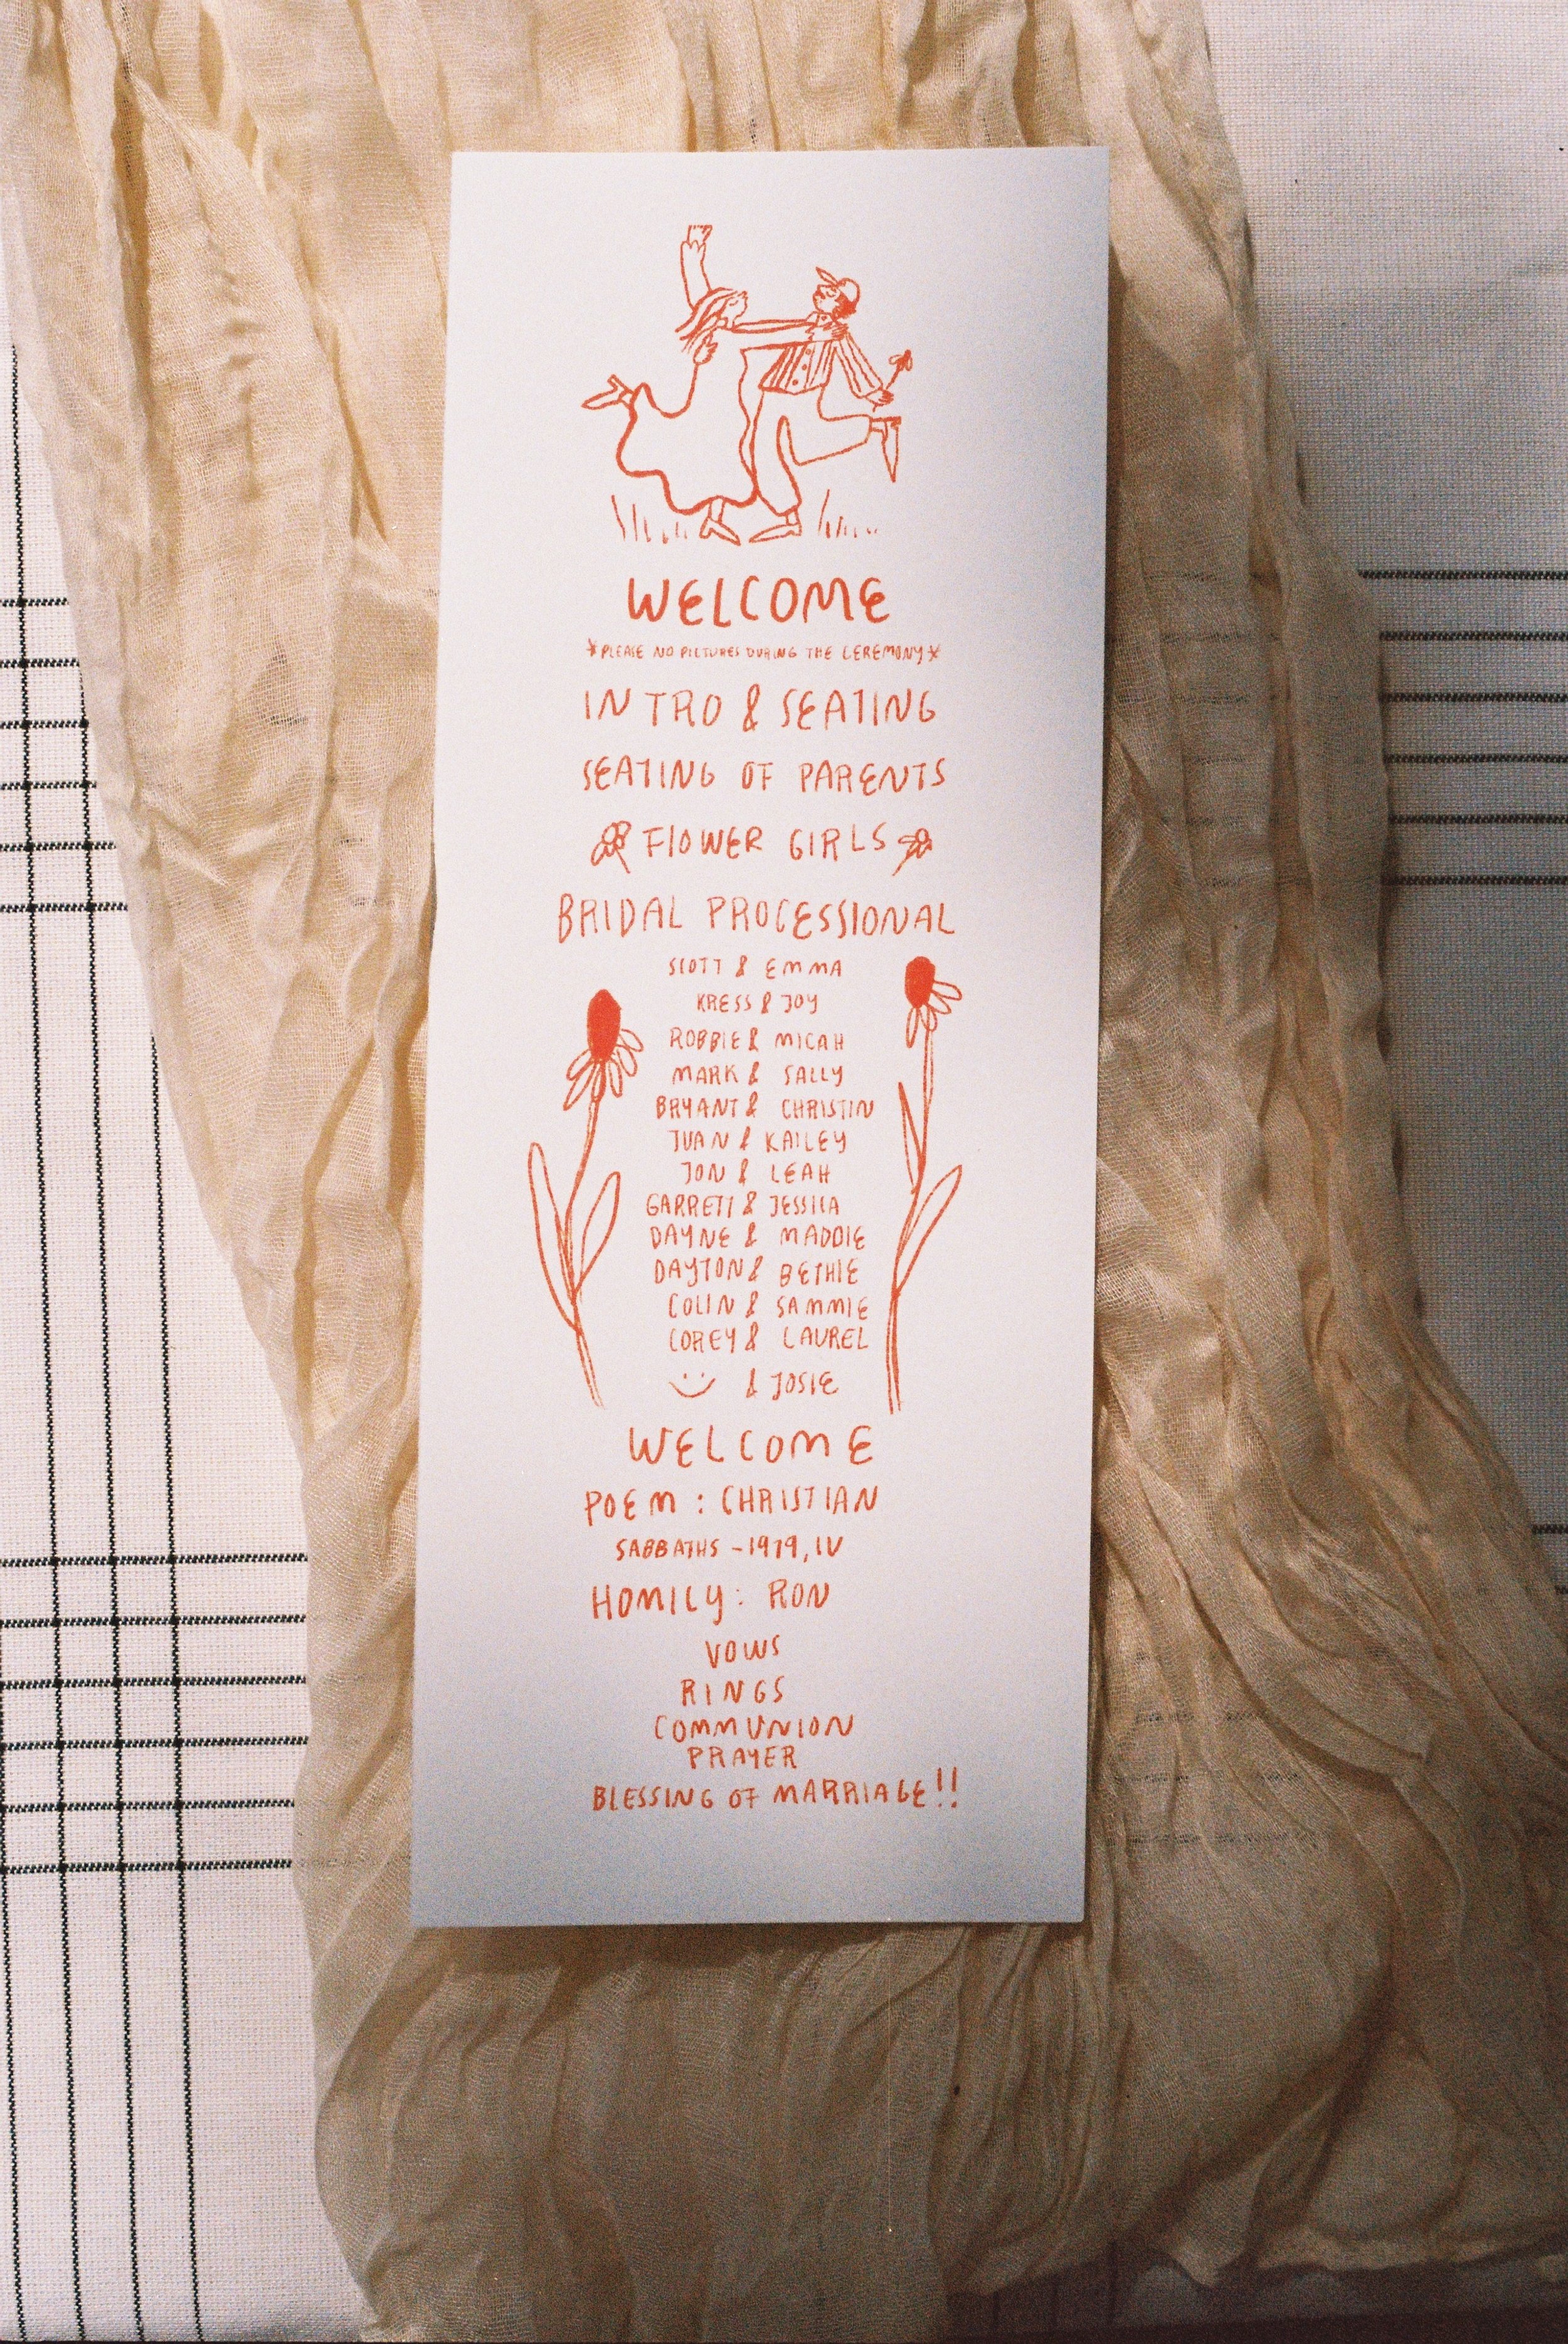 WELCOME
*PLEASE NO PICTURES DURING THE CEREMONY*
INTRO & SEATING
SEATING OF PARENTS
FLOWER GIRLS
BRIDAL PROCESSIONAL
SCOTT & EMMA
KRESS & JOY
ROBBIE & MICAH
MARK & SALLY
BRYANT & CHRISTIN
JUAN & KAILEY
JON & LEAH
GARRETT & JESSICA
DAYNE & MADDIE
DAYTON & BETHIE
COLIN & SAMMIE
COREY & LAUREL
& JOSIE
WELCOME
POEM : CHRISTIAN
SABBATHS - 1979, IV
HOMILY : RON
VOWS
RINGS
COMMUNION
PRAYER
BLESSING OF MARRIAGE!!